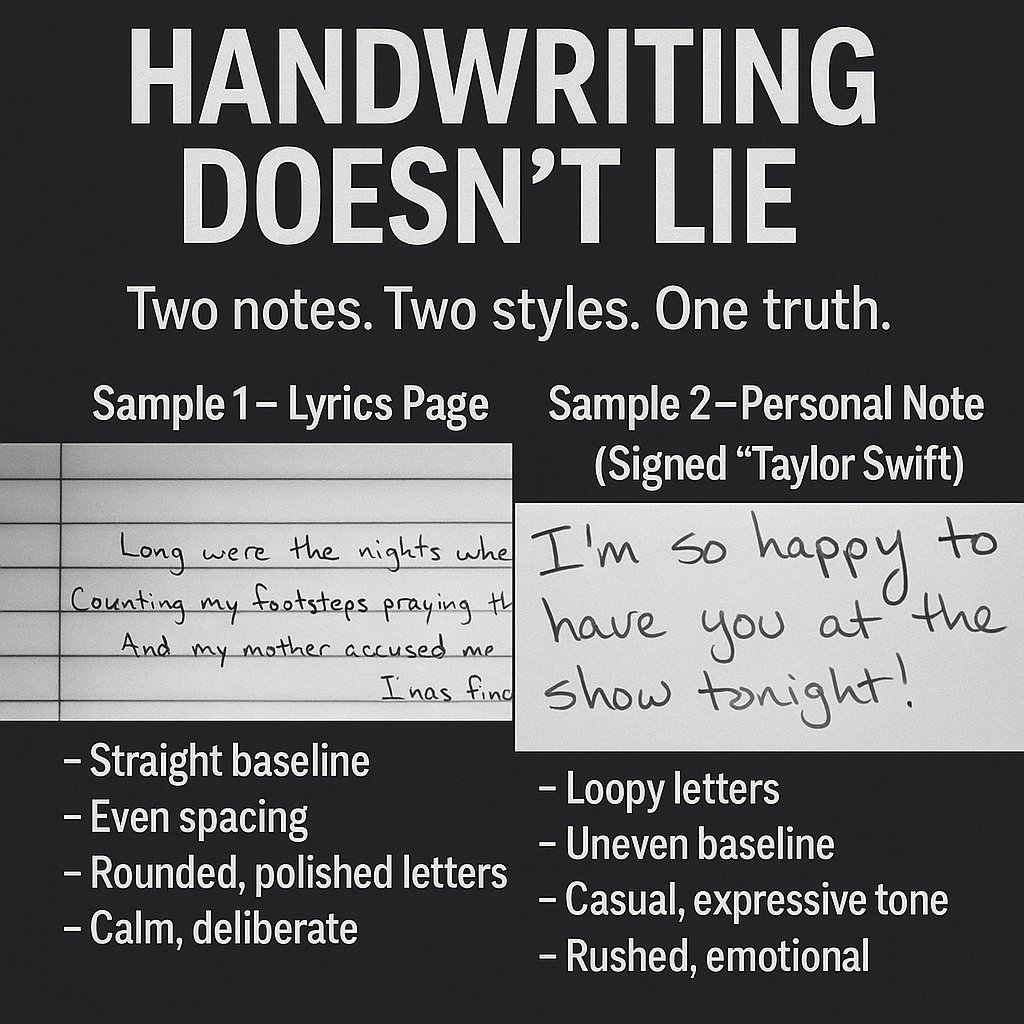 HANDWRITING
DOESN'T LIE
Two notes. Two styles. One truth.
Sample 1 – Lyrics Page
Long were the nights whe
Counting my footsteps praying th
And my mother accused me
I nas finc
– Straight baseline
– Even spacing
– Rounded, polished letters
– Calm, deliberate
Sample 2 – Personal Note
(Signed “Taylor Swift)
I'm so happy to
have you at the
show tonight!
– Loopy letters
– Uneven baseline
– Casual, expressive tone
– Rushed, emotional